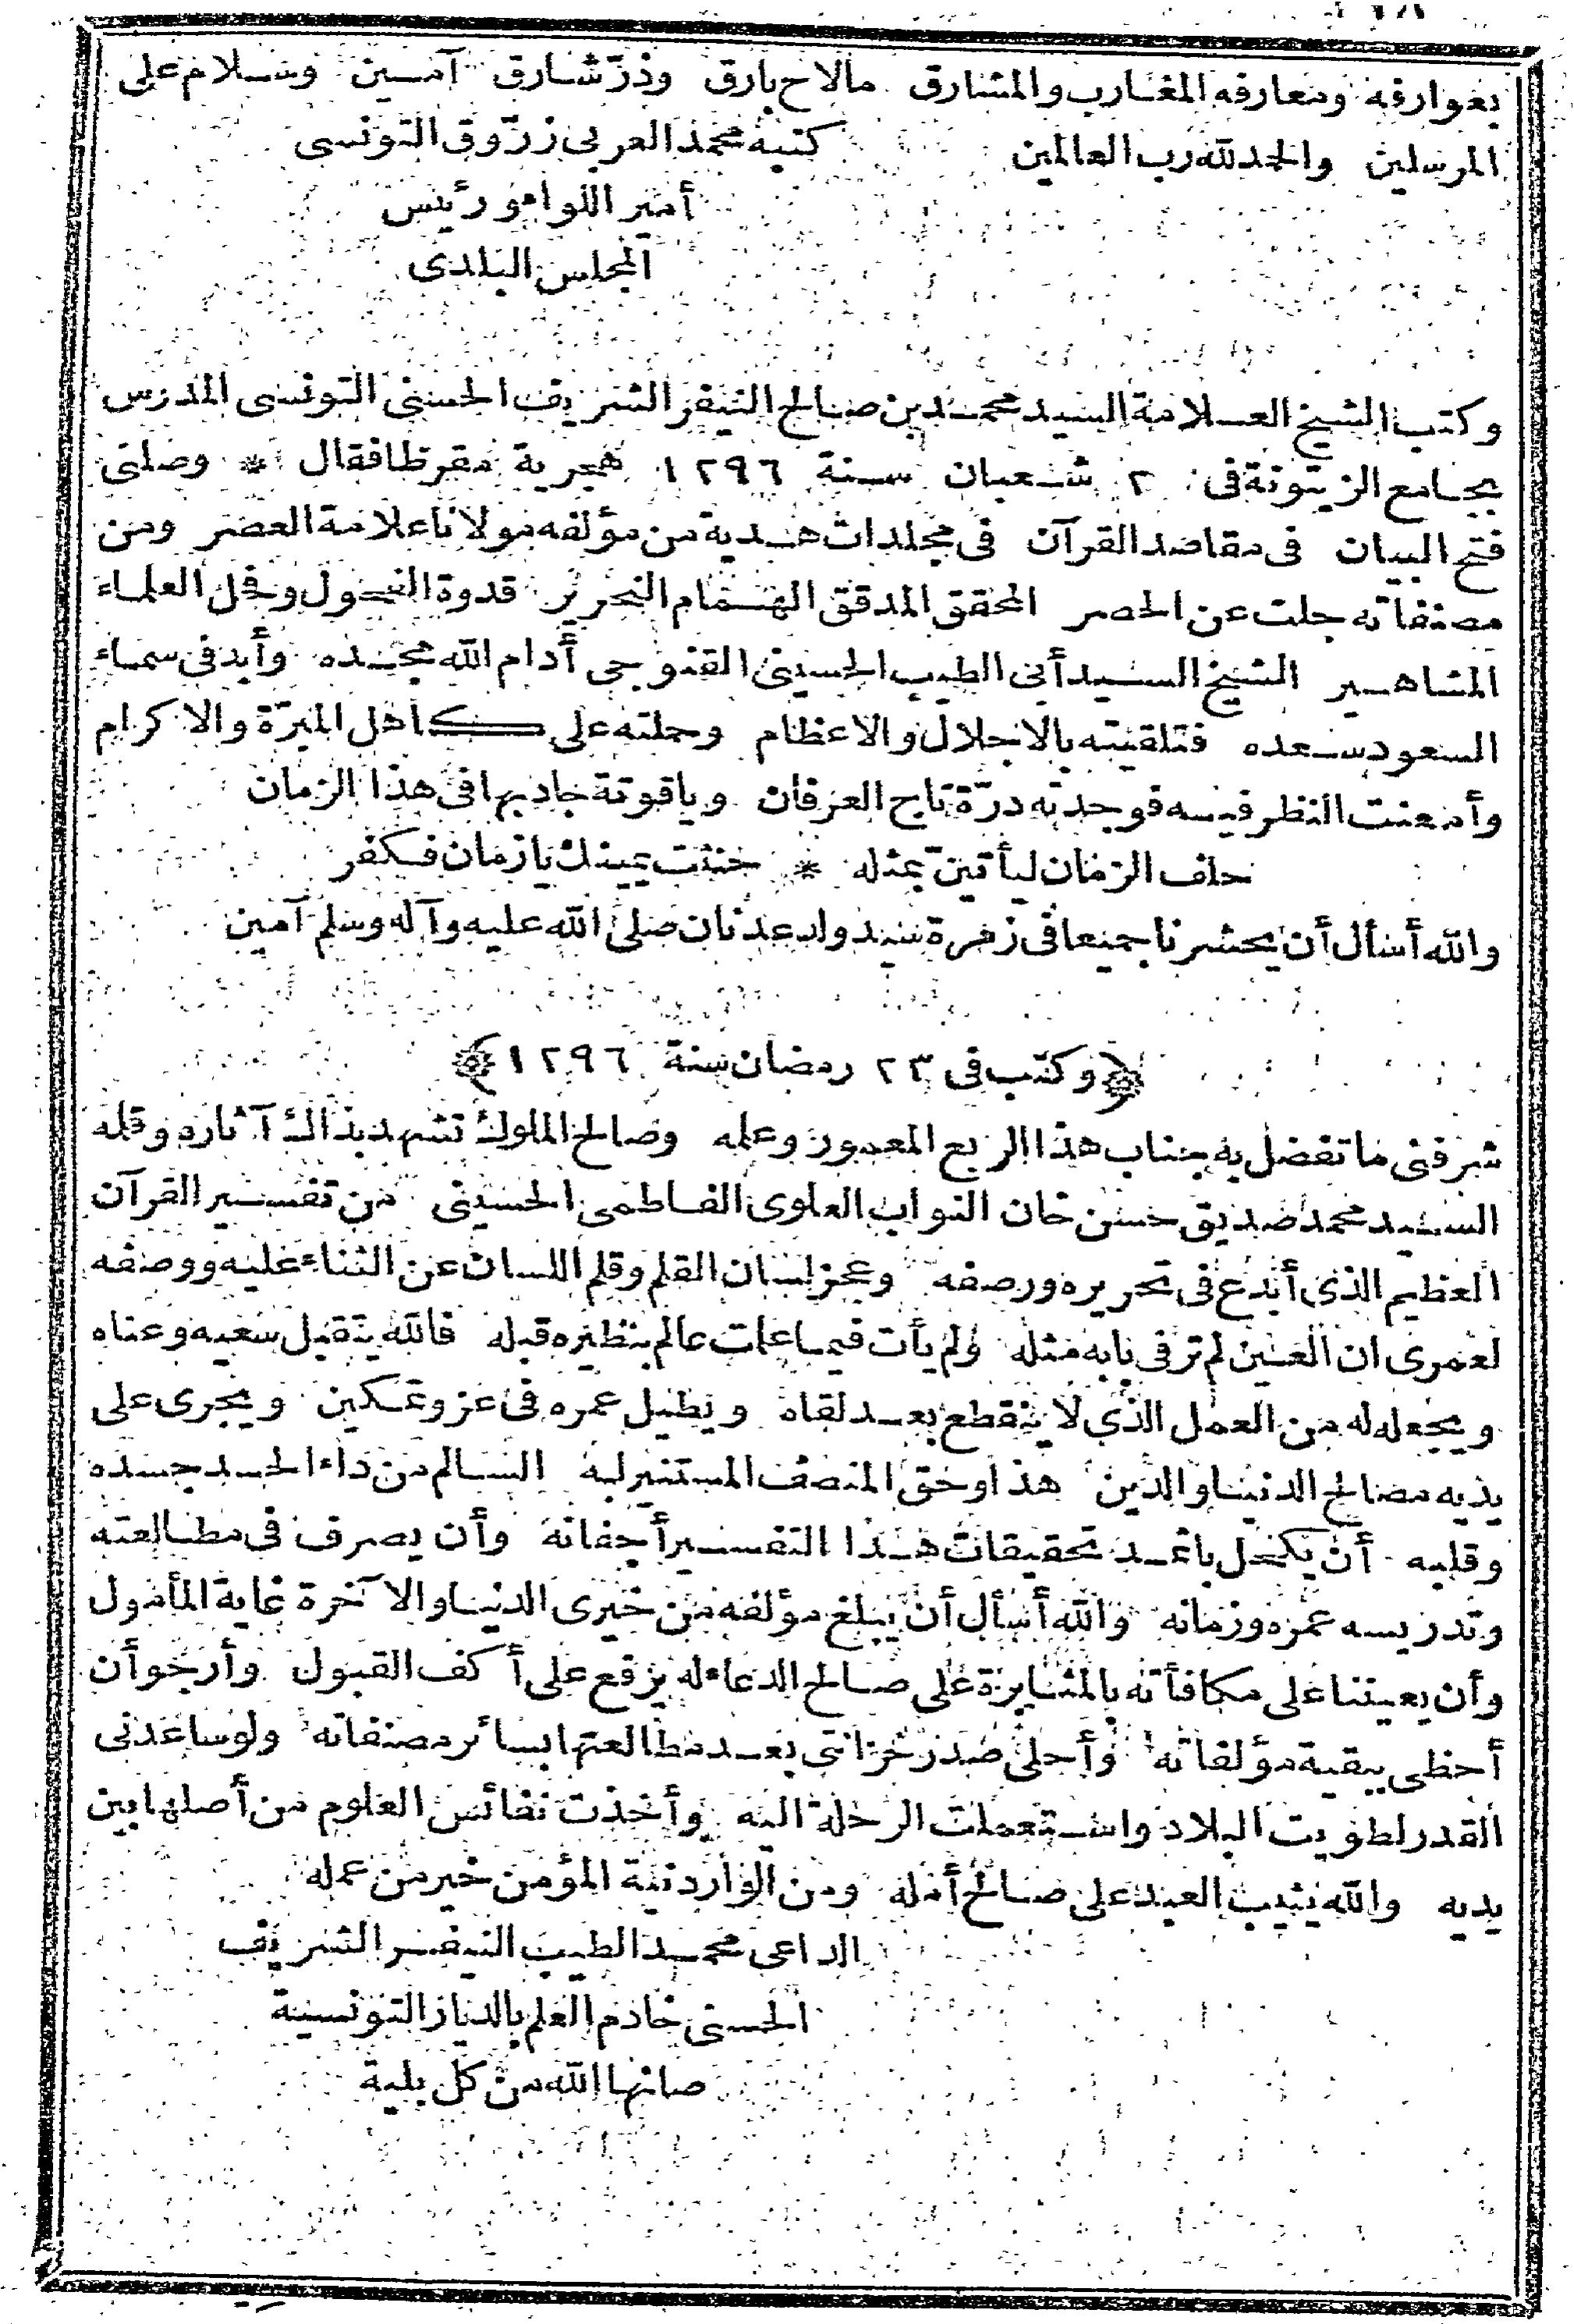 بعوارفه ومعارفه المغارب والمشارق مالاح بارق وذر شارق آمين وسلام على
المرسلين والحمد لله رب العالمين كتبه محمد العربي زروق التونسى
أمير اللواء ورئيس
المجلس البلدى
وكتب الشيخ العلامة السيد محمد بن صالح النيفر الشريف الحسنى التونسى المدرس
بجامع الزيتونة فى ٢ شعبان سنة ١٢٩٦ هجرية مقرظا فقال * وصلنى
فتح البيان فى مقاصد القرآن فى مجلدات هدية من مؤلفه مولانا علامة العصر ومن
مصنفاته جلت عن الحصر المحقق المدقق الهمام النحرير قدوة الفحول وفحل العلماء
المشاهير الشيخ السيد أبى الطيب الحسينى القنوجى أدام الله مجده وأبد فى سماء
السعود سعده فتلقيته بالاجلال والاعظام وحملته على كاهل المبرّة والاكرام
وأمعنت النظر فيه فوجدته درّة تاج العرفان وياقوتة جاد بها فى هذا الزمان
حلف الزمان ليأتينّ بمثله * حنثت يمينك يا زمان فكفر
والله أسأل أن يحشرنا جميعا فى زمرة سيد ولد عدنان صلى الله عليه وآله وسلم آمين
﴿وكتب فى ٢٣ رمضان سنة ١٢٩٦﴾
شرفنى ما تفضل به جناب هذا الربع المعمور وعلمه وصالح الملوك تشهد بذالك آثاره وقلمه
السيد محمد صديق حسن خان النواب العلوى الفاطمى الحسينى من تفسير القرآن
العظيم الذى أبدع فى تحريره ورصفه وعجز لسان القلم وقلم اللسان عن الثناء عليه ووصفه
لعمرى ان العين لم تر فى بابه مثله ولم يأت فيما علمت عالم بنظيره قبله فالله يتقبل سعيه وعناه
ويجعله له من العمل الذى لا ينقطع بعد لقاه ويطيل عمره فى عز وتمكين ويجرى على
يديه مصالح الدنيا والدين هذا وحق المنصف المستنير لبه السالم من داء الحسد جسده
وقلبه أن يكحل باثمد تحقيقات هذا التفسير أجفانه وأن يصرف فى مطالعته
وتدريسه عمره وزمانه والله أسأل أن يبلغ مؤلفه من خيرى الدنيا والآخرة غاية المأمول
وأن يعيننا على مكافأته بالمثابرة على صالح الدعاء له يرفع على أكف القبول وأرجو أن
أحظى ببقية مؤلفاته وأحلى صدر خزانتى بعد مطالعتها بسائر مصنفاته ولو ساعدنى
القدر لطويت البلاد واستعملت الرحلة اليه وأخذت نفائس العلوم من أصلها بين
يديه والله يثيب العبد على صالح أمله ومن الوارد نية المؤمن خير من عمله
الداعى محمد الطيب النيفر الشريف
الحسنى خادم العلم بالديار التونسية
صانها الله من كل بلية